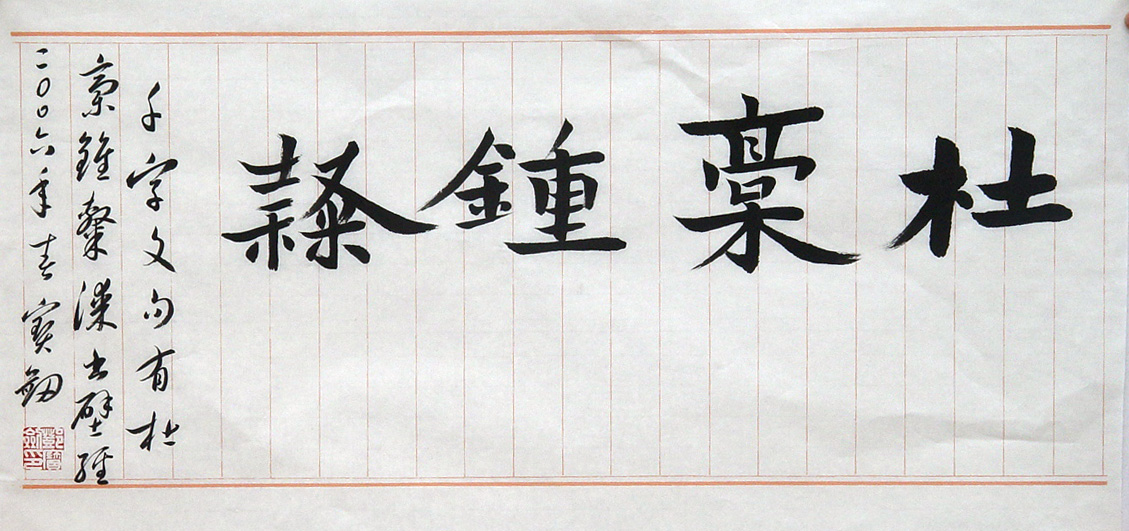 杜稾鍾隸
千字文句有杜
稾鍾隸漆書壁經
二〇〇六年春寶劔